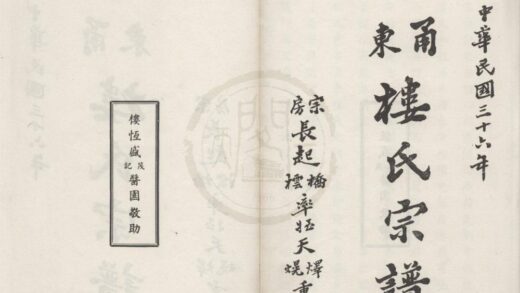 中華民國三十六年
甬東
樓氏宗譜
宗房長起雲率姪天重
樓恆盛茂記醬園敬助